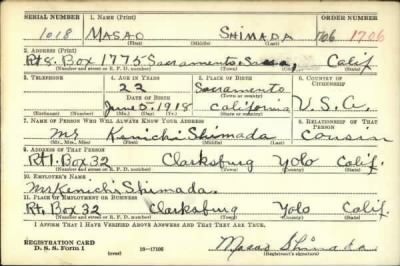 SERIAL NUMBER 1. NAME (Print) ORDER NUMBER
1018 MASAO SHIMADA 1706
(First) (Middle) (Last)
2. ADDRESS (Print)
Rt 8. Box 1775 Sacramento, Calif.
(Number and street or R. F. D. number) (Town) (County) (State)
3. TELEPHONE 4. AGE IN YEARS 5. PLACE OF BIRTH 6. COUNTRY OF CITIZENSHIP
22 Sacramento
DATE OF BIRTH (Town or county)
1918 California U. S. A.
(Exchange) (No.) (Mo.) (Day) (Yr.) (State or country)
7. NAME OF PERSON WHO WILL ALWAYS KNOW YOUR ADDRESS 8. RELATIONSHIP OF THAT PERSON
Mr Kenichi Shimada cousin
(Mr., Mrs., Miss) (First) (Middle) (Last)
9. ADDRESS OF THAT PERSON
Rt 1. Box 32 Clarksburg Yolo Calif.
(Number and street or R. F. D. number) (Town) (County) (State)
10. EMPLOYER'S NAME
Mr Kenichi Shimada.
11. PLACE OF EMPLOYMENT OR BUSINESS
Rt, Box 32 Clarksburg Yolo Calif.
(Number and street or R. F. D. number) (Town) (County) (State)
I AFFIRM THAT I HAVE VERIFIED ABOVE ANSWERS AND THAT THEY ARE TRUE.
REGISTRATION CARD Masao Shimada
D. S. S. Form 1 (over) 16—17105 (Registrant's signature)